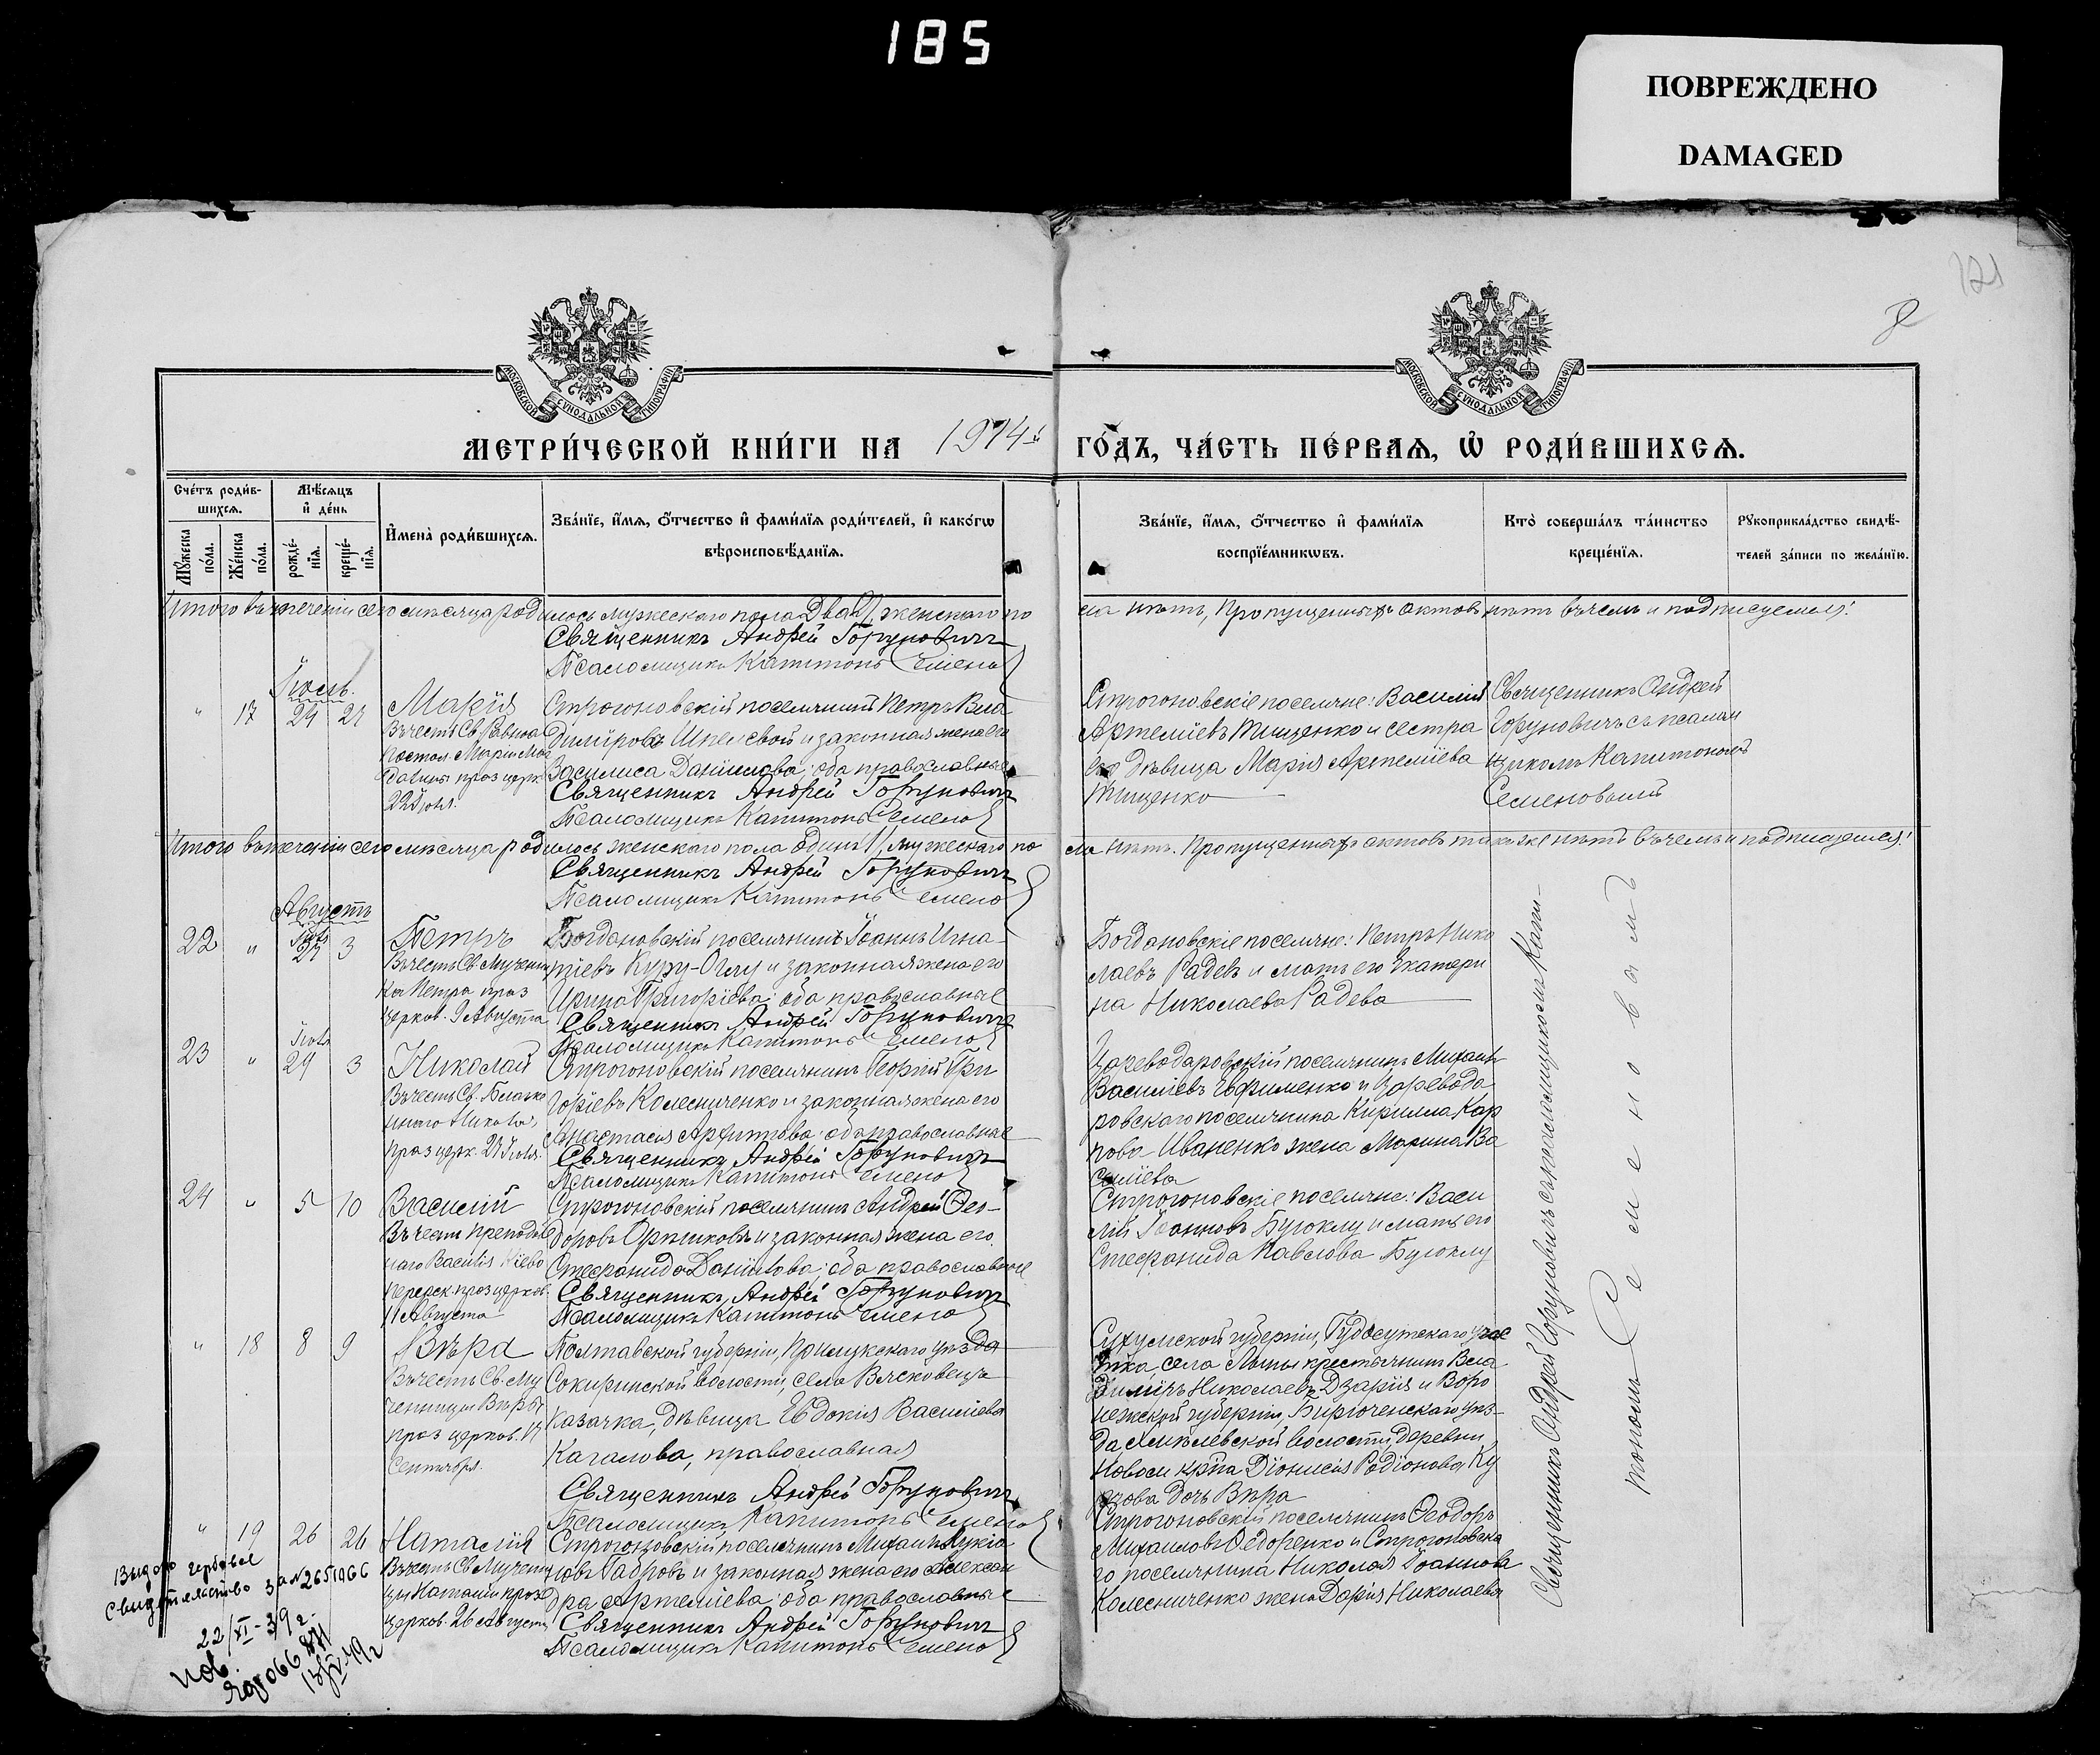 185
ПОВРЕЖДЕНО
DAMAGED
121
МОСКОВСКОЙ СУНОДАЛЬНОЙ ТИПОГРАФІИ
МОСКОВСКОЙ СУНОДАЛЬНОЙ ТИПОГРАФІИ
МЕТРИ́ЧЕСКОЙ КНИ́ГИ НА 1914й ГО́ДЪ, ЧА́СТЬ ПЕ́РВАѦ, Ѡ РОДИ́ВШИХСѦ.
Сче́тъ роди́в-
шихсѧ.
Мꙋ́жеска по́ла.
Же́нска по́ла.
Мѣ́сѧцъ
и҆ де́нь
рожде́-
нїѧ.
креще́-
нїѧ.
И҆мена̀ роди́вшихсѧ.
Зва́нїе, и҆́мѧ, ѻ҆́тчество и҆ фами́лїѧ роди́телей, и҆ како́гѡ
вѣроисповѣ́данїѧ.
Зва́нїе, и҆́мѧ, ѻ҆́тчество и҆ фами́лїѧ
воспрїе́мникѡвъ.
Кто̀ соверша́лъ та́инство
креще́нїѧ.
Рꙋкоприкла́дство свидѣ́-
телей за́писи по жела́нїю.
Итого въ теченіи сего мѣсяца родилось мужескаго пола два 2/, женскаго по
ла нѣтъ, Пропущенныхъ актовъ нѣтъ въ чемъ и подписуемся:
Священникъ Андрей Горунович
Псаломщикъ Капитонъ Семено
Іюль.
" 17 24 27 Марія
Въ честь Св. Равноа
постол. Маріи Маг
далины праз церк
22 Іюля.
Строгоновскій поселянинъ Петръ Вла
диміровъ Шпелевой и законная жена его
Василиса Даніилова; оба православные
Священникъ Андрей Горунович
Псаломщикъ Капитонъ Семено
Строгоновскіе поселяне: Василій
Артеміевъ Тищенко и сестра
его дѣвица Марія Артеміева
Тищенко
Священникъ Андрей
Горуновичъ съ псалом
щикомъ Капитономъ
Семеновымъ
Итого въ теченіи сего мѣсяца родилось женскаго пола один 1/, мужескаго по
ла нѣтъ. Пропущенныхъ актовъ также нѣтъ въ чемъ и подписуемся:
Священникъ Андрей Горунович
Псаломщикъ Капитонъ Семено
Августъ
22 " Іюля 27 3 Петръ
Въ честь Св. Мучени
ка Петра праз
церков. 9 Августа
Богдановскій поселянинъ Іоаннъ Игна-
тіевъ Куру-Оглу и законная жена его
Ирина Григоріева; оба православные
Священникъ Андрей Горунович
Псаломщикъ Капитонъ Семено
Богдановскіе поселяне: Петръ Нико
лаевъ Радевъ и мать его Екатери
на Николаева Радева
23 " Іюля 29 3 Николай
Въ честь Св. Блажен
наго Николая
праз церк. 27 Іюля.
Строгоновскій поселянинъ Георгій Гри
горіевъ Колесниченко и законная жена его
Анастасія Архипова; оба православные
Священникъ Андрей Горунович
Псаломщикъ Капитонъ Семено
Цареводаровскій поселянинъ Михаилъ
Василіевъ Ефименко и Царевода
ровскаго поселянина Кирилла Кар
пова Иваненко жена Марина Ва
силіева
24 " 5 10 Василій
Въ честь Преподоб
наго Василія Кіево
Печерск. праз церков.
11 Августа
Строгоновскій поселянинъ Андрей Ѳео-
доровъ Орешковъ и законная жена его
Стефанида Даніилова; оба православные
Священникъ Андрей Горунович
Псаломщикъ Капитонъ Семено
Строгоновскіе поселяне: Васи
лій Іоанновъ Буюклу и мать его
Стефанида Павлова Буюклу
" 18 8 9 Вѣра
Въ честь Св. Му
ченицы Вѣры
праз церков. 17
Сентября.
Полтавской губерніи, Прилукскаго уѣзда
Сокиринской волости, села Васковецъ
казачка, дѣвица Евдокія Василіева
Кагалова, православная
Священникъ Андрей Горунович
Псаломщикъ Капитонъ Семено
Сухумской губерніи, Гудаутскаго учас
тка, села Лыхны крестьянинъ Вла
диміръ Николаевъ Дзарія и Воро
нежской губерніи, Бирюченскаго уѣз-
да волости, деревни
кр-на Діонисія Родіонова Ку
дочь Вѣра
" 19 26 26 Наталія
Въ честь Св. Мучени
цы Наталіи праз
церков. 26 Августа
Строгоновскій поселянинъ Михаилъ Лукіа
новъ Габровъ и законная жена его Алексан
дра Артеміева; оба православные
Священникъ Андрей Горунович
Псаломщикъ Капитонъ Семено
Строгоновскій поселянинъ Ѳеодоръ
Михаиловъ Ѳедоренко и Строгоновска
го поселянина Николая Іоаннова
Колесниченко жена Дарія Николаева
Священникъ Андрей Горуновичъ съ псаломщикомъ Капи-
тономъ Семеновымъ
Выдано гербовое
свидетельство за № 2651966
22/XI-39г.